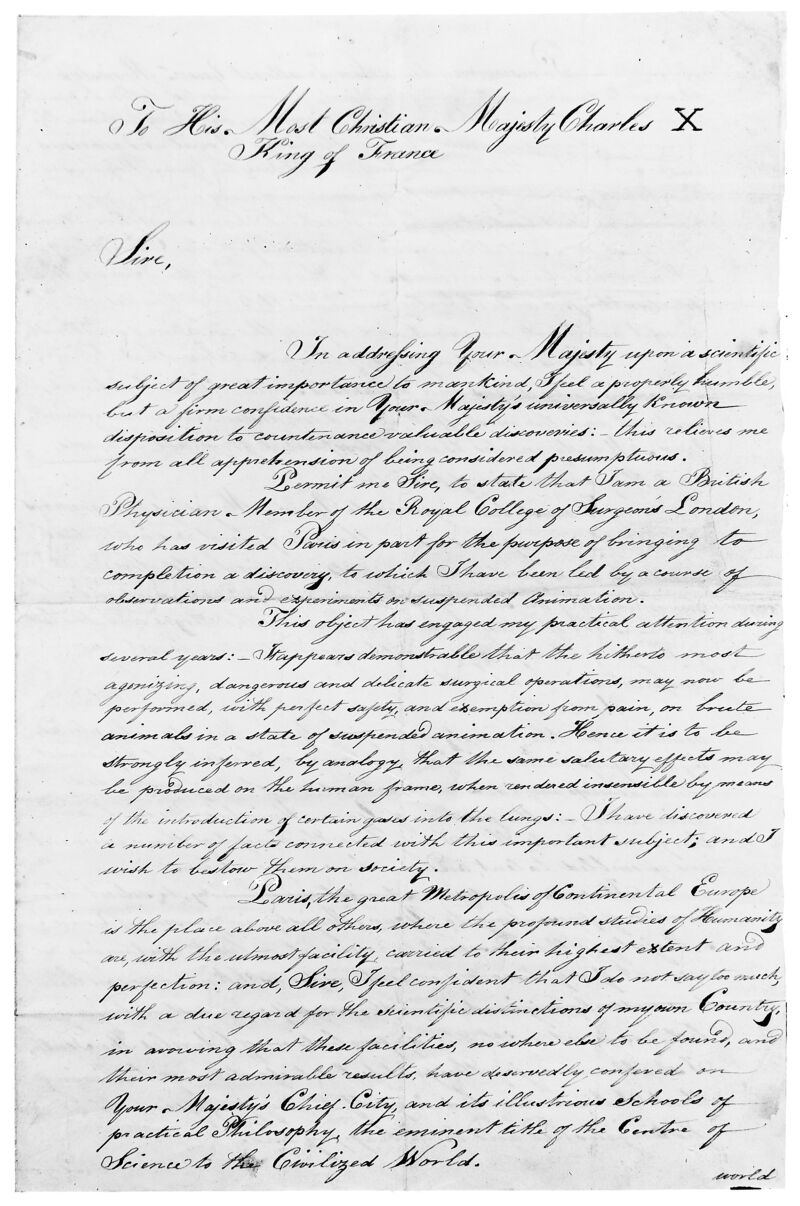 To His Most Christian Majesty Charles X
King of France
Sire,
In addressing Your Majesty upon a scientific
subject of great importance to mankind, I feel a properly humble,
but a firm confidence in Your Majesty's universally known
disposition to countenance valuable discoveries:- this relieves me
from all apprehension of being considered presumptuous.
Permit me Sire, to state that I am a British
Physician Member of the Royal College of Surgeon's London,
who has visited Paris in part for the purpose of bringing to
completion a discovery, to which I have been led by a course of
observations and experiments on suspended Animation.
This object has engaged my practical attention during
several years:- It appears demonstrable that the hitherto most
agonizing, dangerous and delicate surgical operations, may now be
performed, with perfect safety, and exemption from pain, on brute
animals in a state of suspended animation. Hence it is to be
strongly inferred, by analogy, that the same salutary effects may
be produced on the human frame, when rendered insensible by means
of the introduction of certain gases into the lungs:- I have discovered
a number of facts connected with this important subject; and I
wish to bestow them on society.
Paris, the great Metropolis of Continental Europe
is the place above all others, where the profound studies of Humanity
are, with the utmost facility, carried to their highest extent and
perfection: and, Sire, I feel confident that I do not say too much,
with a due regard for the scientific distinctions of my own Country,
in avowing that these facilities, no where else to be found, and
their most admirable results, have deservedly confered on
Your Majesty's Chief City, and its illustrious schools of
practical Philosophy, the eminent title of the Centre of
Science to the Civilized World.
world